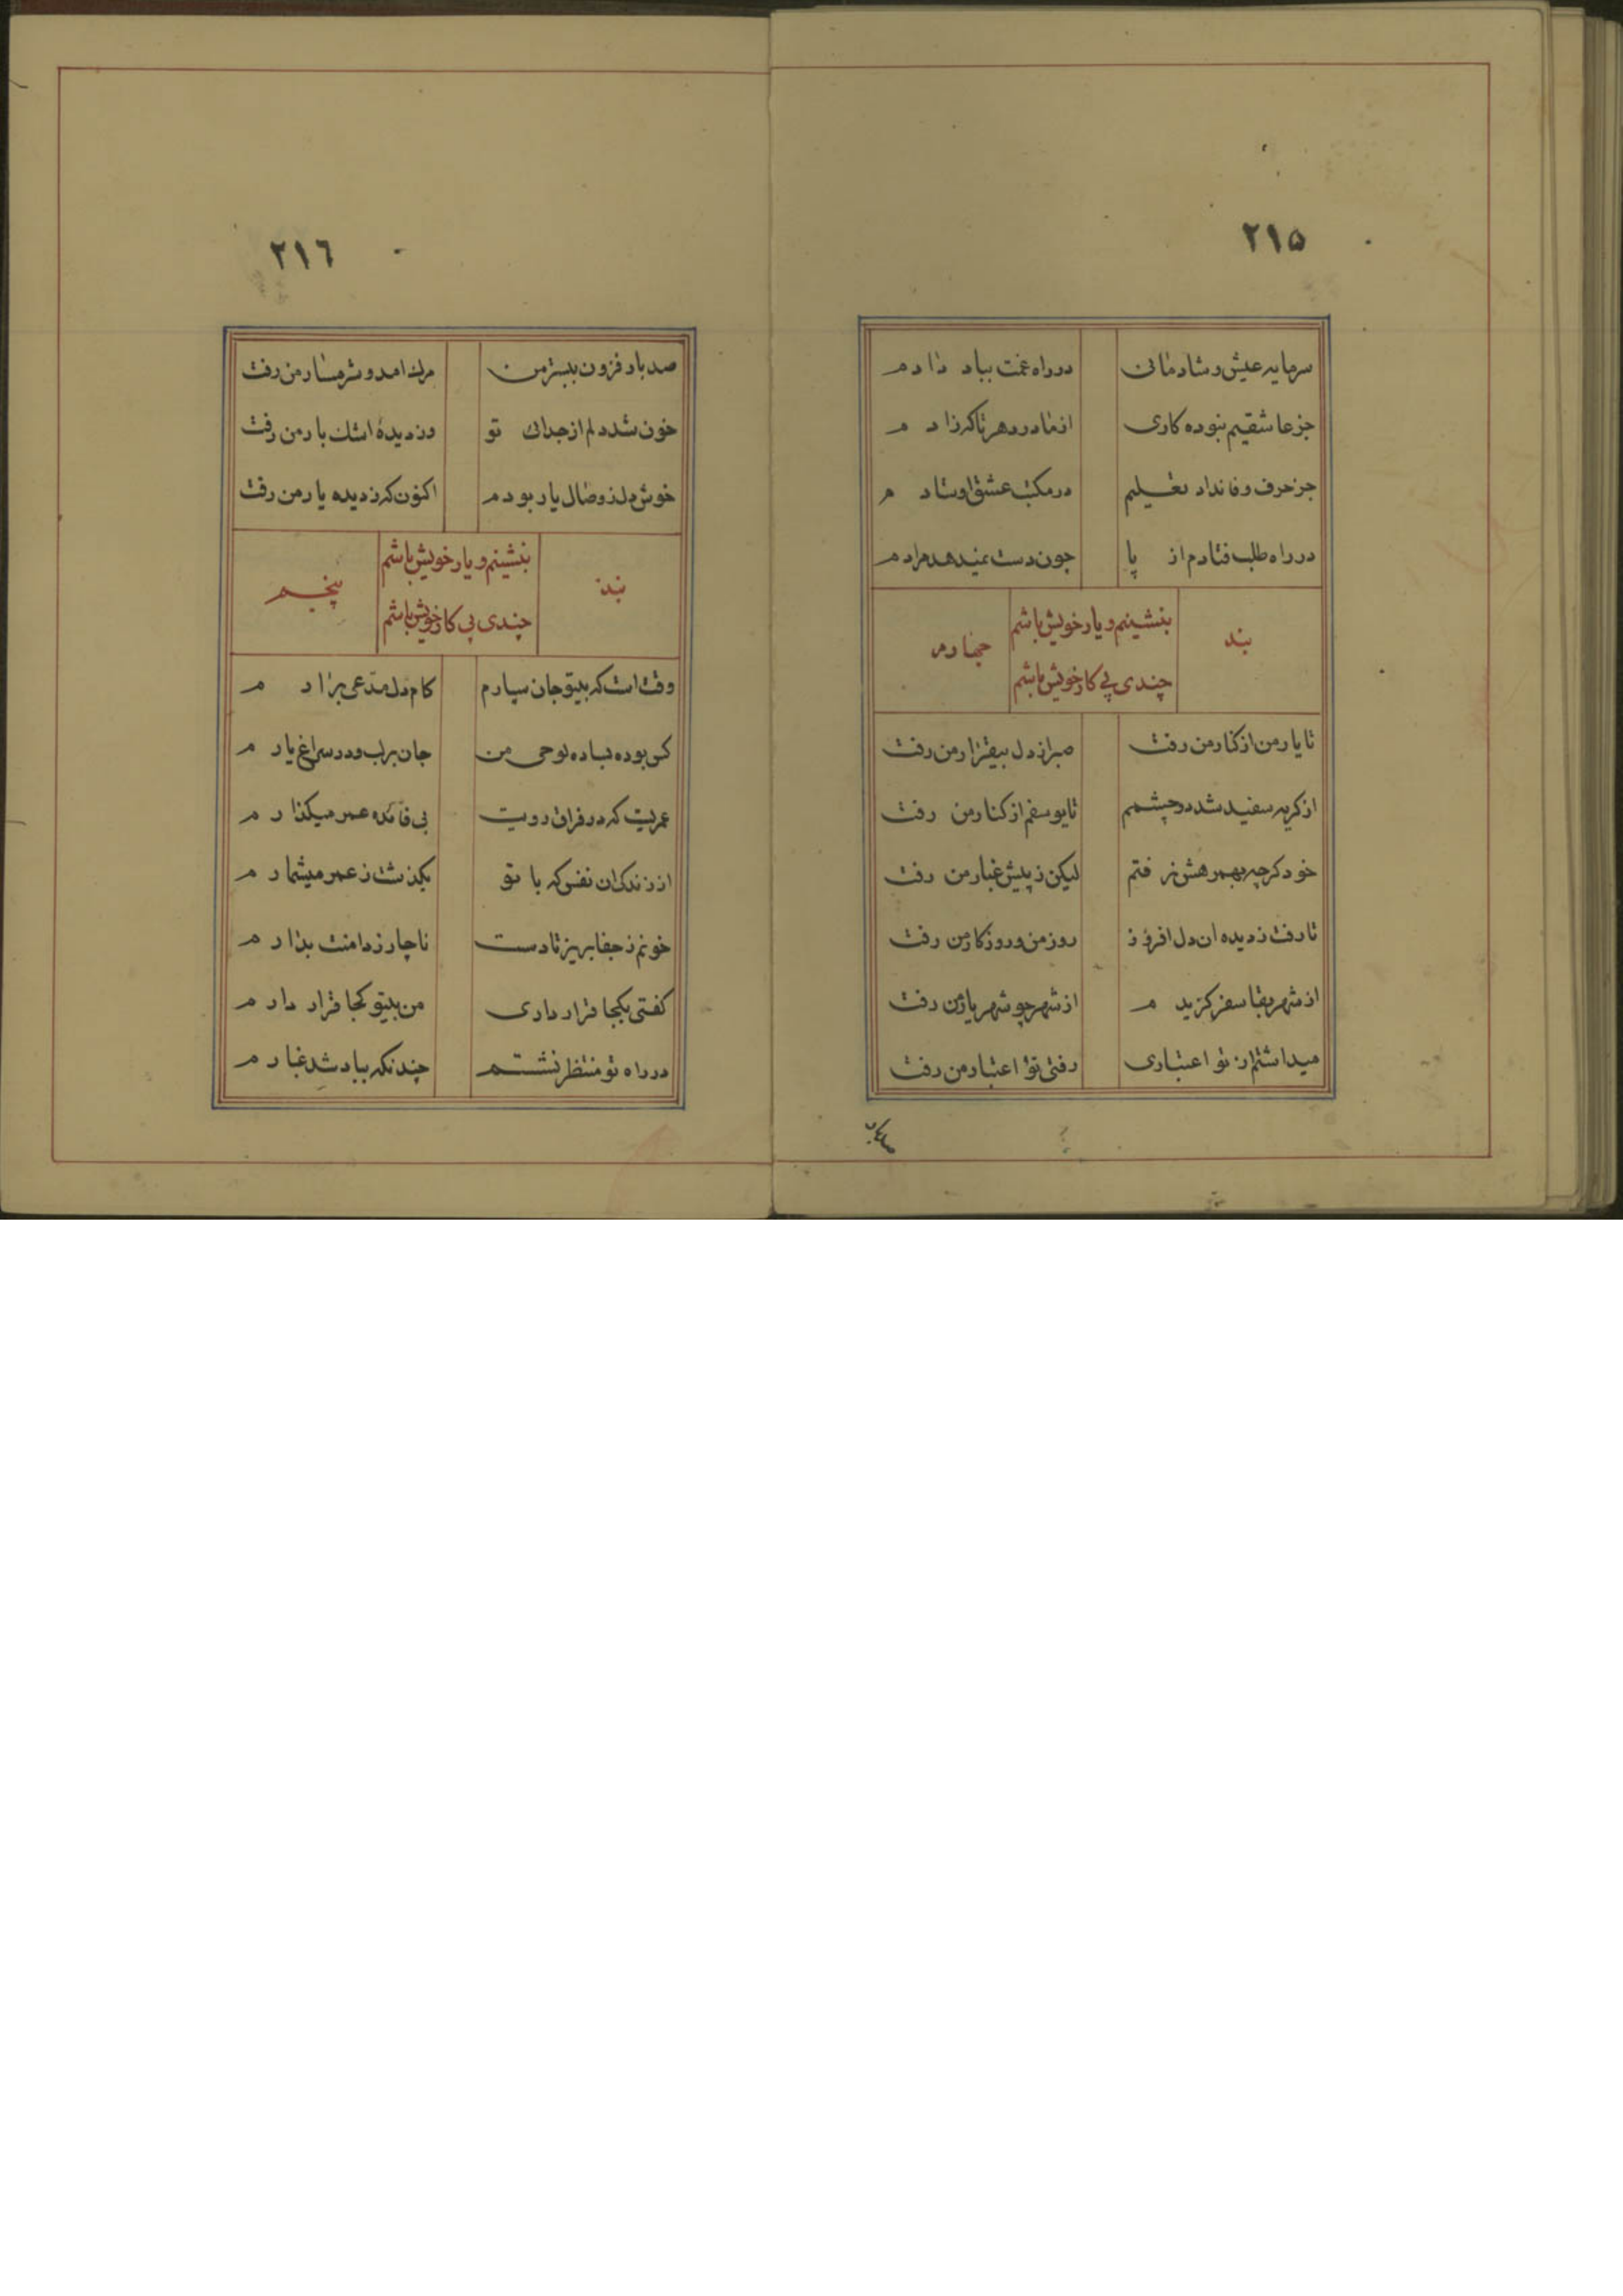 ٢١٥
سرمایه عیش و شادمانی در راه غمت بباد دادم
جز عاشقیم نبوده کاری از مادر دهر تا که زادم
جز حرف وفا نداد تعلیم در مکتب عشق اوستادم
در راه طلب فتادم از پا چون دست نمیدهد مرادم
بند بنشینم و یار خویش باشم چهارم
چندی پی کار خویش باشم
تا یار من از کنار من رفت صبر از دل بیقرار من رفت
از کریه سفید شد دو چشمم تا یوسفم از کنار من رفت
خود کرچه بهمرهش نرفتم لیکن ز پیش غبار من رفت
تا رفت ز دیده ان دل افروز روز من و روزکار من رفت
از شهر بقا سفر کزیدم از شهر چو شهریار من رفت
میداشتم از تو اعتباری رفتی تو اعتبار من رفت
٢١٦
صد بار فزون ببستر من مرك امد و شرمسار من رفت
خون شد دلم از جدائی تو وز دیدهٔ اشك بار من رفت
خوش دل ز وصال یار بودم اکنون که ز دیده یار من رفت
بند بنشینم و یار خویش باشم پنجم
چندی پی کار خویش باشم
وقت است که بیتو جان سپارم کام دل مدعی برارم
کس بوده بساده لوحی من جان بر لب و در سراغ یارم
عمریست که در فراق رویت بی فائده عمر میکذارم
از زندکی ان نفس که با تو بکذشت ز عمر میشمارم
خونم ز جفا بریز تا دست ناچار ز دامنت بدارم
کفتی بکجا قرار داری من بیتو کجا قرار دارم
در راه تو منتظر نشستم چندنکه بباد شد غبارم